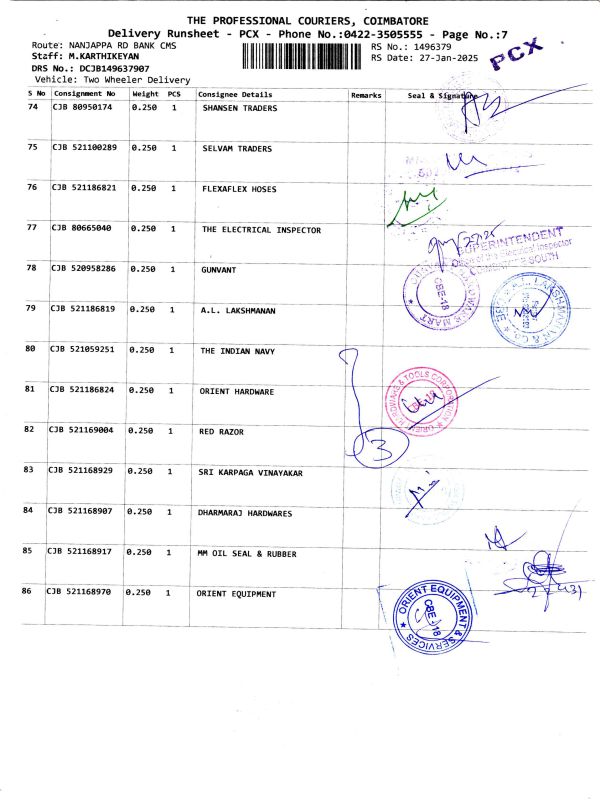 THE PROFESSIONAL COURIERS, COIMBATORE
Delivery Runsheet - PCX - Phone No.:0422-3505555 - Page No.:7
Route: NANJAPPA RD BANK CMS RS No.: 1496379
Staff: M.KARTHIKEYAN RS Date: 27-Jan-2025
DRS No.: DCJB149637907
Vehicle: Two Wheeler Delivery
PCX
S No Consignment No Weight PCS Consignee Details Remarks Seal & Signature
74 CJB 80950174 0.250 1 SHANSEN TRADERS
75 CJB 521100289 0.250 1 SELVAM TRADERS
76 CJB 521186821 0.250 1 FLEXAFLEX HOSES
77 CJB 80665040 0.250 1 THE ELECTRICAL INSPECTOR
SUPERINTENDENT
Electrical Inspector
SOUTH
78 CJB 520958286 0.250 1 GUNVANT
CBE-18
MART
79 CJB 521186819 0.250 1 A.L. LAKSHMANAN
80 CJB 521059251 0.250 1 THE INDIAN NAVY
81 CJB 521186824 0.250 1 ORIENT HARDWARE
& TOOLS CORPORATION
CBE-18
82 CJB 521169004 0.250 1 RED RAZOR
3
83 CJB 521168929 0.250 1 SRI KARPAGA VINAYAKAR
84 CJB 521168907 0.250 1 DHARMARAJ HARDWARES
85 CJB 521168917 0.250 1 MM OIL SEAL & RUBBER
86 CJB 521168970 0.250 1 ORIENT EQUIPMENT
ORIENT EQUIPMENT & SERVICES
CBE-18